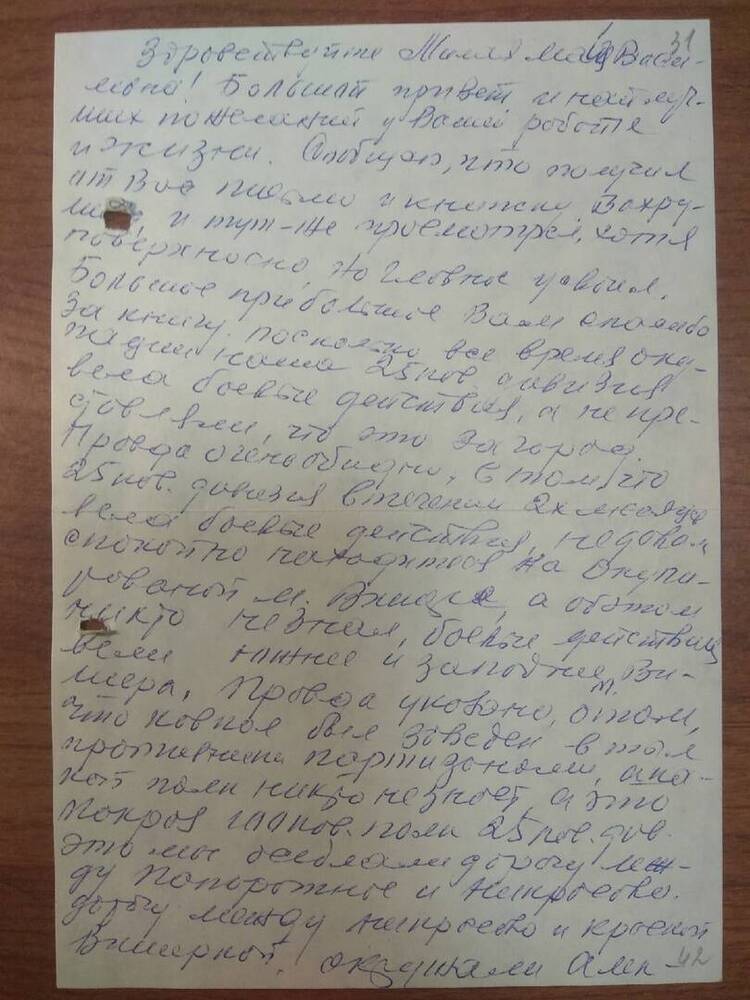 31
Здравствуйте Милая Васи-
льевна! Большой привет и наилуч-
ших пожеланий у Вашей работе
и жизни. Сообщаю, что получил
от Вас письмо и книжку Вахру-
и тут-же просмотрел, хотя
поверхносно, но гловное усвоил.
Большое прибольшое Вам спасибо
за книгу. поскольько все время ожи-
дали наша 25 ков. дивизия
вела боевые действия, а не пре-
ставлял, что это за город.
Правда очень обидно, в том, что
25 ков. дивизия в течении 2х месяцев
вела боевые действия,
спокойно находится на окупи-
рованой м. Вишере, а об этом
никто не знал, боевые действия
вели южнее и западнее м. Ви-
шера, Правда указано, о том,
что ковполк был заведен в тыл
противника партизанами, а ка-
кой полк никто не знает, а это
100 ков. полк 25 ков. див.
это мы дорогу меж-
ду Папоротное и Некрасово.
дорогу между Некрасово и красной
Вишеркой,
42